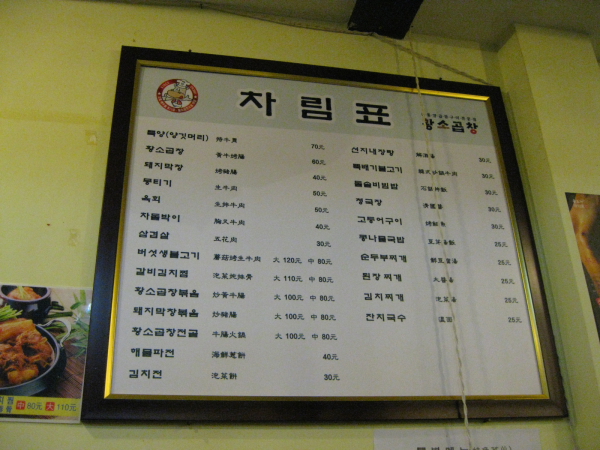 차림표
황소곱창
특양(양깃머리) 특牛胃 70元
황소곱창 黃牛烤腸 60元
돼지막창 烤豬腸 40元
뭉티기 生牛肉 50元
육회 生拌牛肉 50元
차돌박이 胸叉牛肉 40元
삼겹살 五花肉 30元
버섯생불고기 蘑菇烤生牛肉 大 120元 中 80元
갈비김치찜 泡菜燉排骨 大 110元 中 80元
황소곱창볶음 炒黃牛腸 大 100元 中 80元
돼지막창볶음 炒豬腸 大 100元 中 80元
황소곱창전골 牛腸火鍋 大 100元 中 80元
해물파전 海鮮蔥餅 40元
김치전 泡菜餅 30元
선지내장탕 30元
뚝배기불고기 30元
돌솥비빔밥 石鍋拌飯 30元
청국장 30元
고등어구이 30元
콩나물국밥 25元
순두부찌개 25元
된장찌개 大醬湯 25元
김치찌개 泡菜湯 25元
잔치국수 溫面 25元
中 80元 大 110元